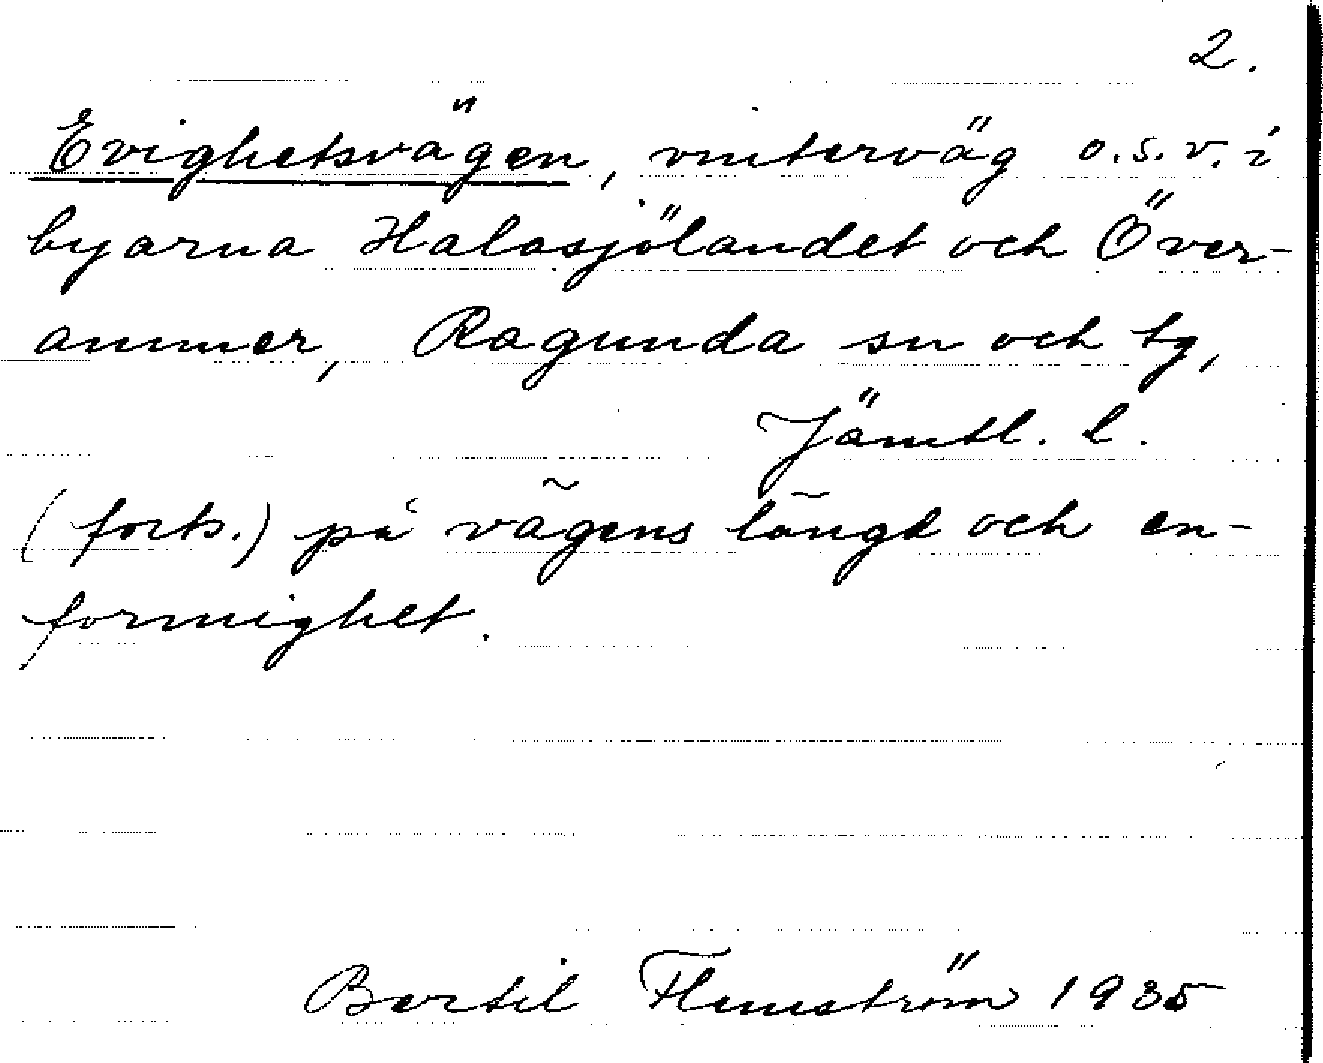 2.
Evighetsvägen, vinterväg o.s.v. i
byarna Halasjölandet och Över-
ammer, Ragunda sn och tg,
Jämtl. l.
(forts.) på vägens längd och en-
formighet.
Bertil Flemström 1935